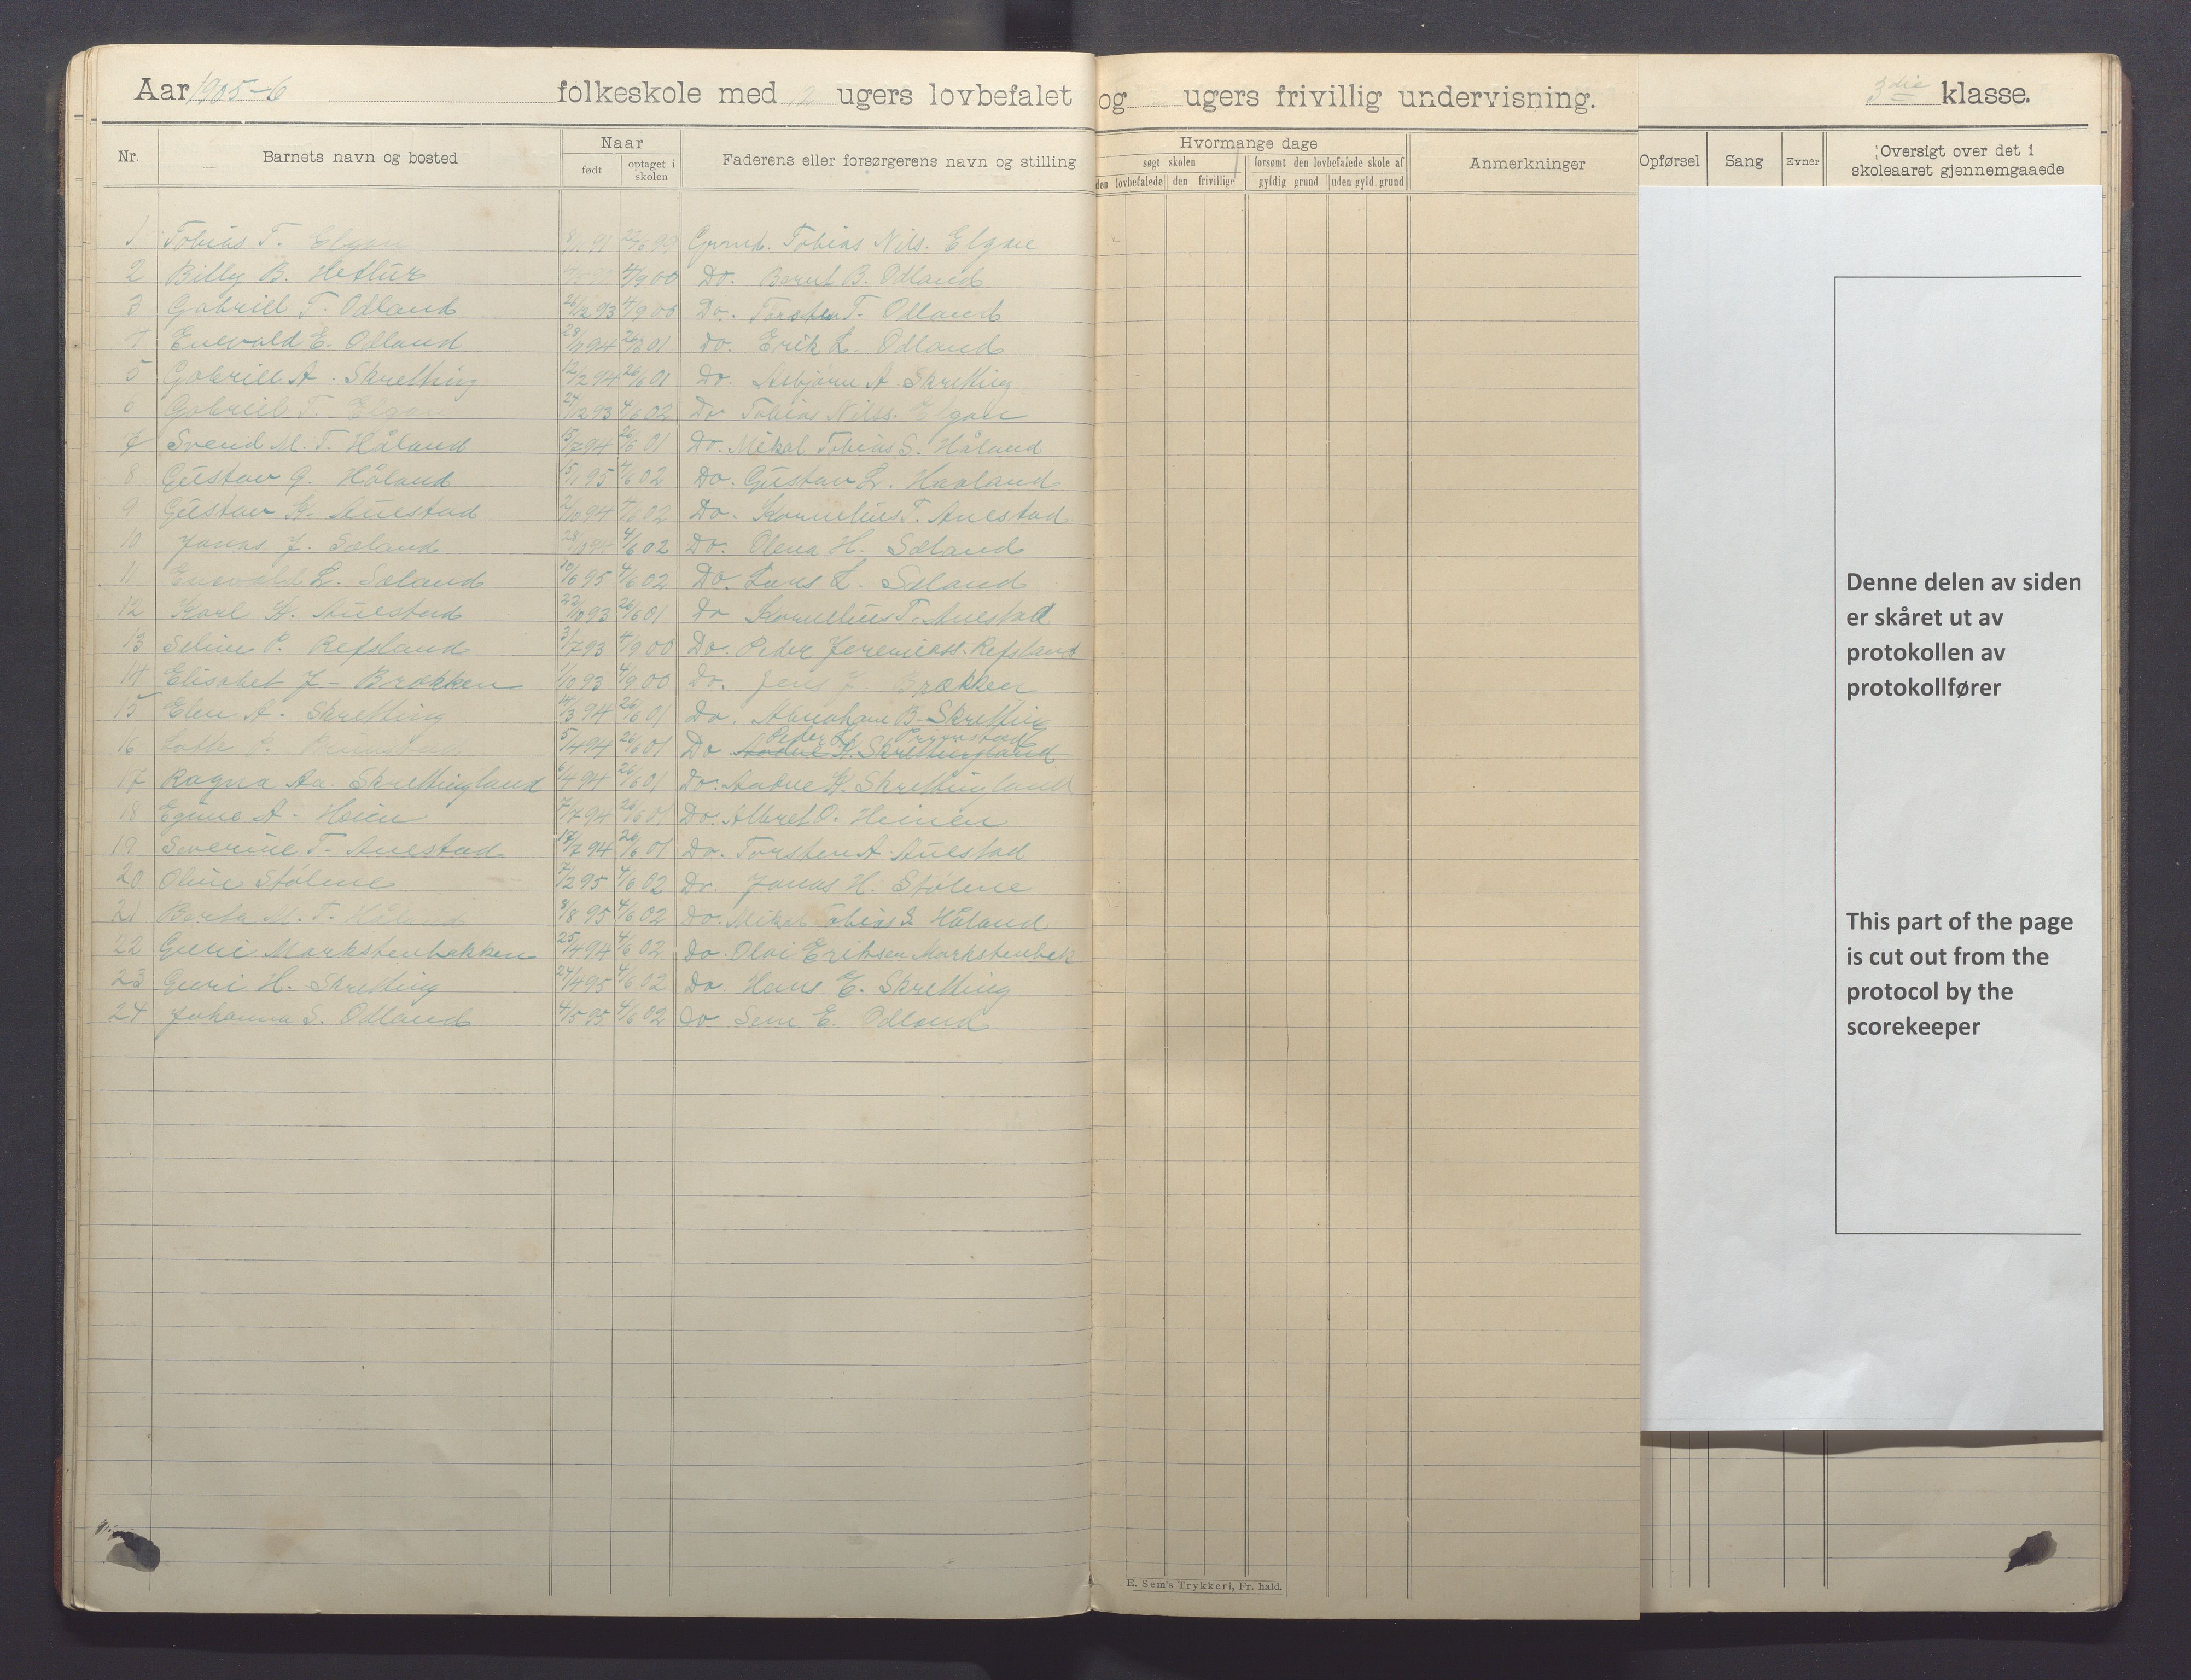 Aar 1905-6 folkeskole med 12 ugers lovbefalet og ugers frivillig undervisning. 3die klasse.
Nr. Barnets navn og bosted Naar født optaget i skolen Faderens eller forsørgerens navn og stilling Hvormange dage søgt skolen den lovbefalede den frivillige forsømt den lovbefalede skole af gyldig grund uden gyld. grund Anmerkninger Opførsel Sang Evner Oversigt over det i skoleaaret gjennemgaaede
1 Tobias T. Elgan 91 Tobias Nils. Elgae
2 Billy B. Hetlur 4/9 00 Do. Bernt B. Odland
3 Gabriell T. Odland 26/2 93 4/9 00 Do. Torsten T. Odland
4 Enevald E. Odland 01 Do. Erik L. Odland
5 Gabriell A. Skretting 12/2 94 26/6 01 Do. Asbjørn A. Skretting
6 Gabriel T. Elgan 24/12 93 4/6 02 Do Tobias Nilss. Elgan
7 Svend M. T. Håland 15/7 94 26/6 01 Do. Mikal Tobias S. Håland
8 Gustav G. Håland 15/1 95 4/6 02 Do. Gustav L. Haaland
9 Gustav K. Auestad 2/10 94 4/6 02 Do. Kornelius T. Auestad
10 Jonas J. Sæland 4/6 02 Do. Olena H. Sæland
11 Enevald L. Sæland 10/6 95 4/6 02 Do Lars L. Sæland
12 Karl K. Auestad 22/10 93 26/6 01 Do Kornelius T. Auestad
13 Seline P. Refsland 3/7 93 4/9 00 Do. Peder Jeremiass. Refsland
14 Elisabet J- Brækken 1/10 93 4/9 00 Do. Jens J. Brækken
15 Elen A. Skretting 14/3 94 26/6 01 Do. Abraham B. Skretting
Peder
16 Lotte P. 5/4 94 26/6 01 Do Aadne K. Skrettingland
17 Ragna Aa. Skrettingland 6/4 94 26/6 01 Do. Aadne K. Skrettingland
18 A. Heien 7/7 94 26/6 01 Do. Albret O. Heinen
19 Severine T- Auestad 17/7 94 26/6 01 Do. Torsten A. Auestad
20 Oline Stølene 7/2 95 4/6 02 Do. Jonas H. Stølene
21 Berta M. T. Håland 8/8 95 4/6 02 Do. Mikal Tobias S. Håland
22 Guri Markstenbakken 25/4 94 4/6 02 Do. Olai Eriksen Markstenbak
23 Guri H. Skretting 24/4 95 4/6 02 Do. Hans E. Skretting
24 Johanna S. Odland 4/5 95 4/6 02 Do Sem E. Odland
Denne delen av siden
er skåret ut av
protokollen av
protokollfører
This part of the page
is cut out from the
protocol by the
scorekeeper
E. Sem's Trykkeri, Fr. hald.